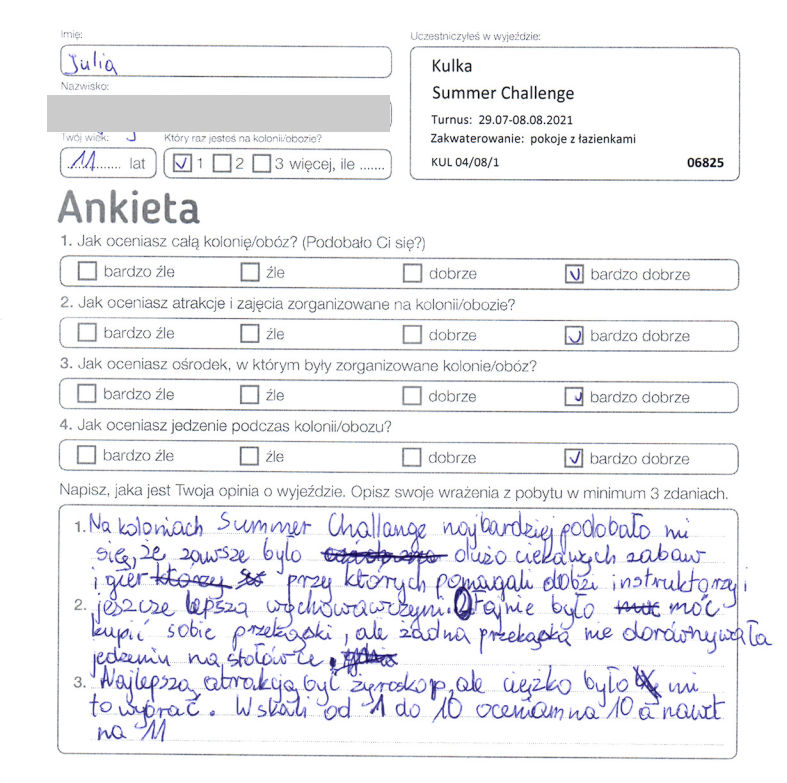 Imię:
Julia
Nazwisko:
Twój wiek:
11 lat
Który raz jesteś na kolonii/obozie?
1 2 3 więcej, ile .......
Uczestniczyłeś w wyjeździe:
Kulka
Summer Challenge
Turnus: 29.07-08.08.2021
Zakwaterowanie: pokoje z łazienkami
KUL 04/08/1 06825
Ankieta
1. Jak oceniasz całą kolonię/obóz? (Podobało Ci się?)
bardzo źle źle dobrze bardzo dobrze
2. Jak oceniasz atrakcje i zajęcia zorganizowane na kolonii/obozie?
bardzo źle źle dobrze bardzo dobrze
3. Jak oceniasz ośrodek, w którym były zorganizowane kolonie/obóz?
bardzo źle źle dobrze bardzo dobrze
4. Jak oceniasz jedzenie podczas kolonii/obozu?
bardzo źle źle dobrze bardzo dobrze
Napisz, jaka jest Twoja opinia o wyjeździe. Opisz swoje wrażenia z pobytu w minimum 3 zdaniach.
1. Na koloniach Summer Challange najbardziej podobało mi
się, że zawsze było dużo ciekawych zabaw
i gier przy których pomagali dobzi instruktorzy i
2. jeszcze lepsza wychowawczyni. Fajnie było móc
kupić sobie przekąski, ale żadna przekąska nie dorównywała
jedzeniu na stołówce.
3. Najlepszą atrakcją był żyroskop, ale ciężko było mi
to wybrać. W skali od 1 do 10 oceniam na 10 a nawet
na 11